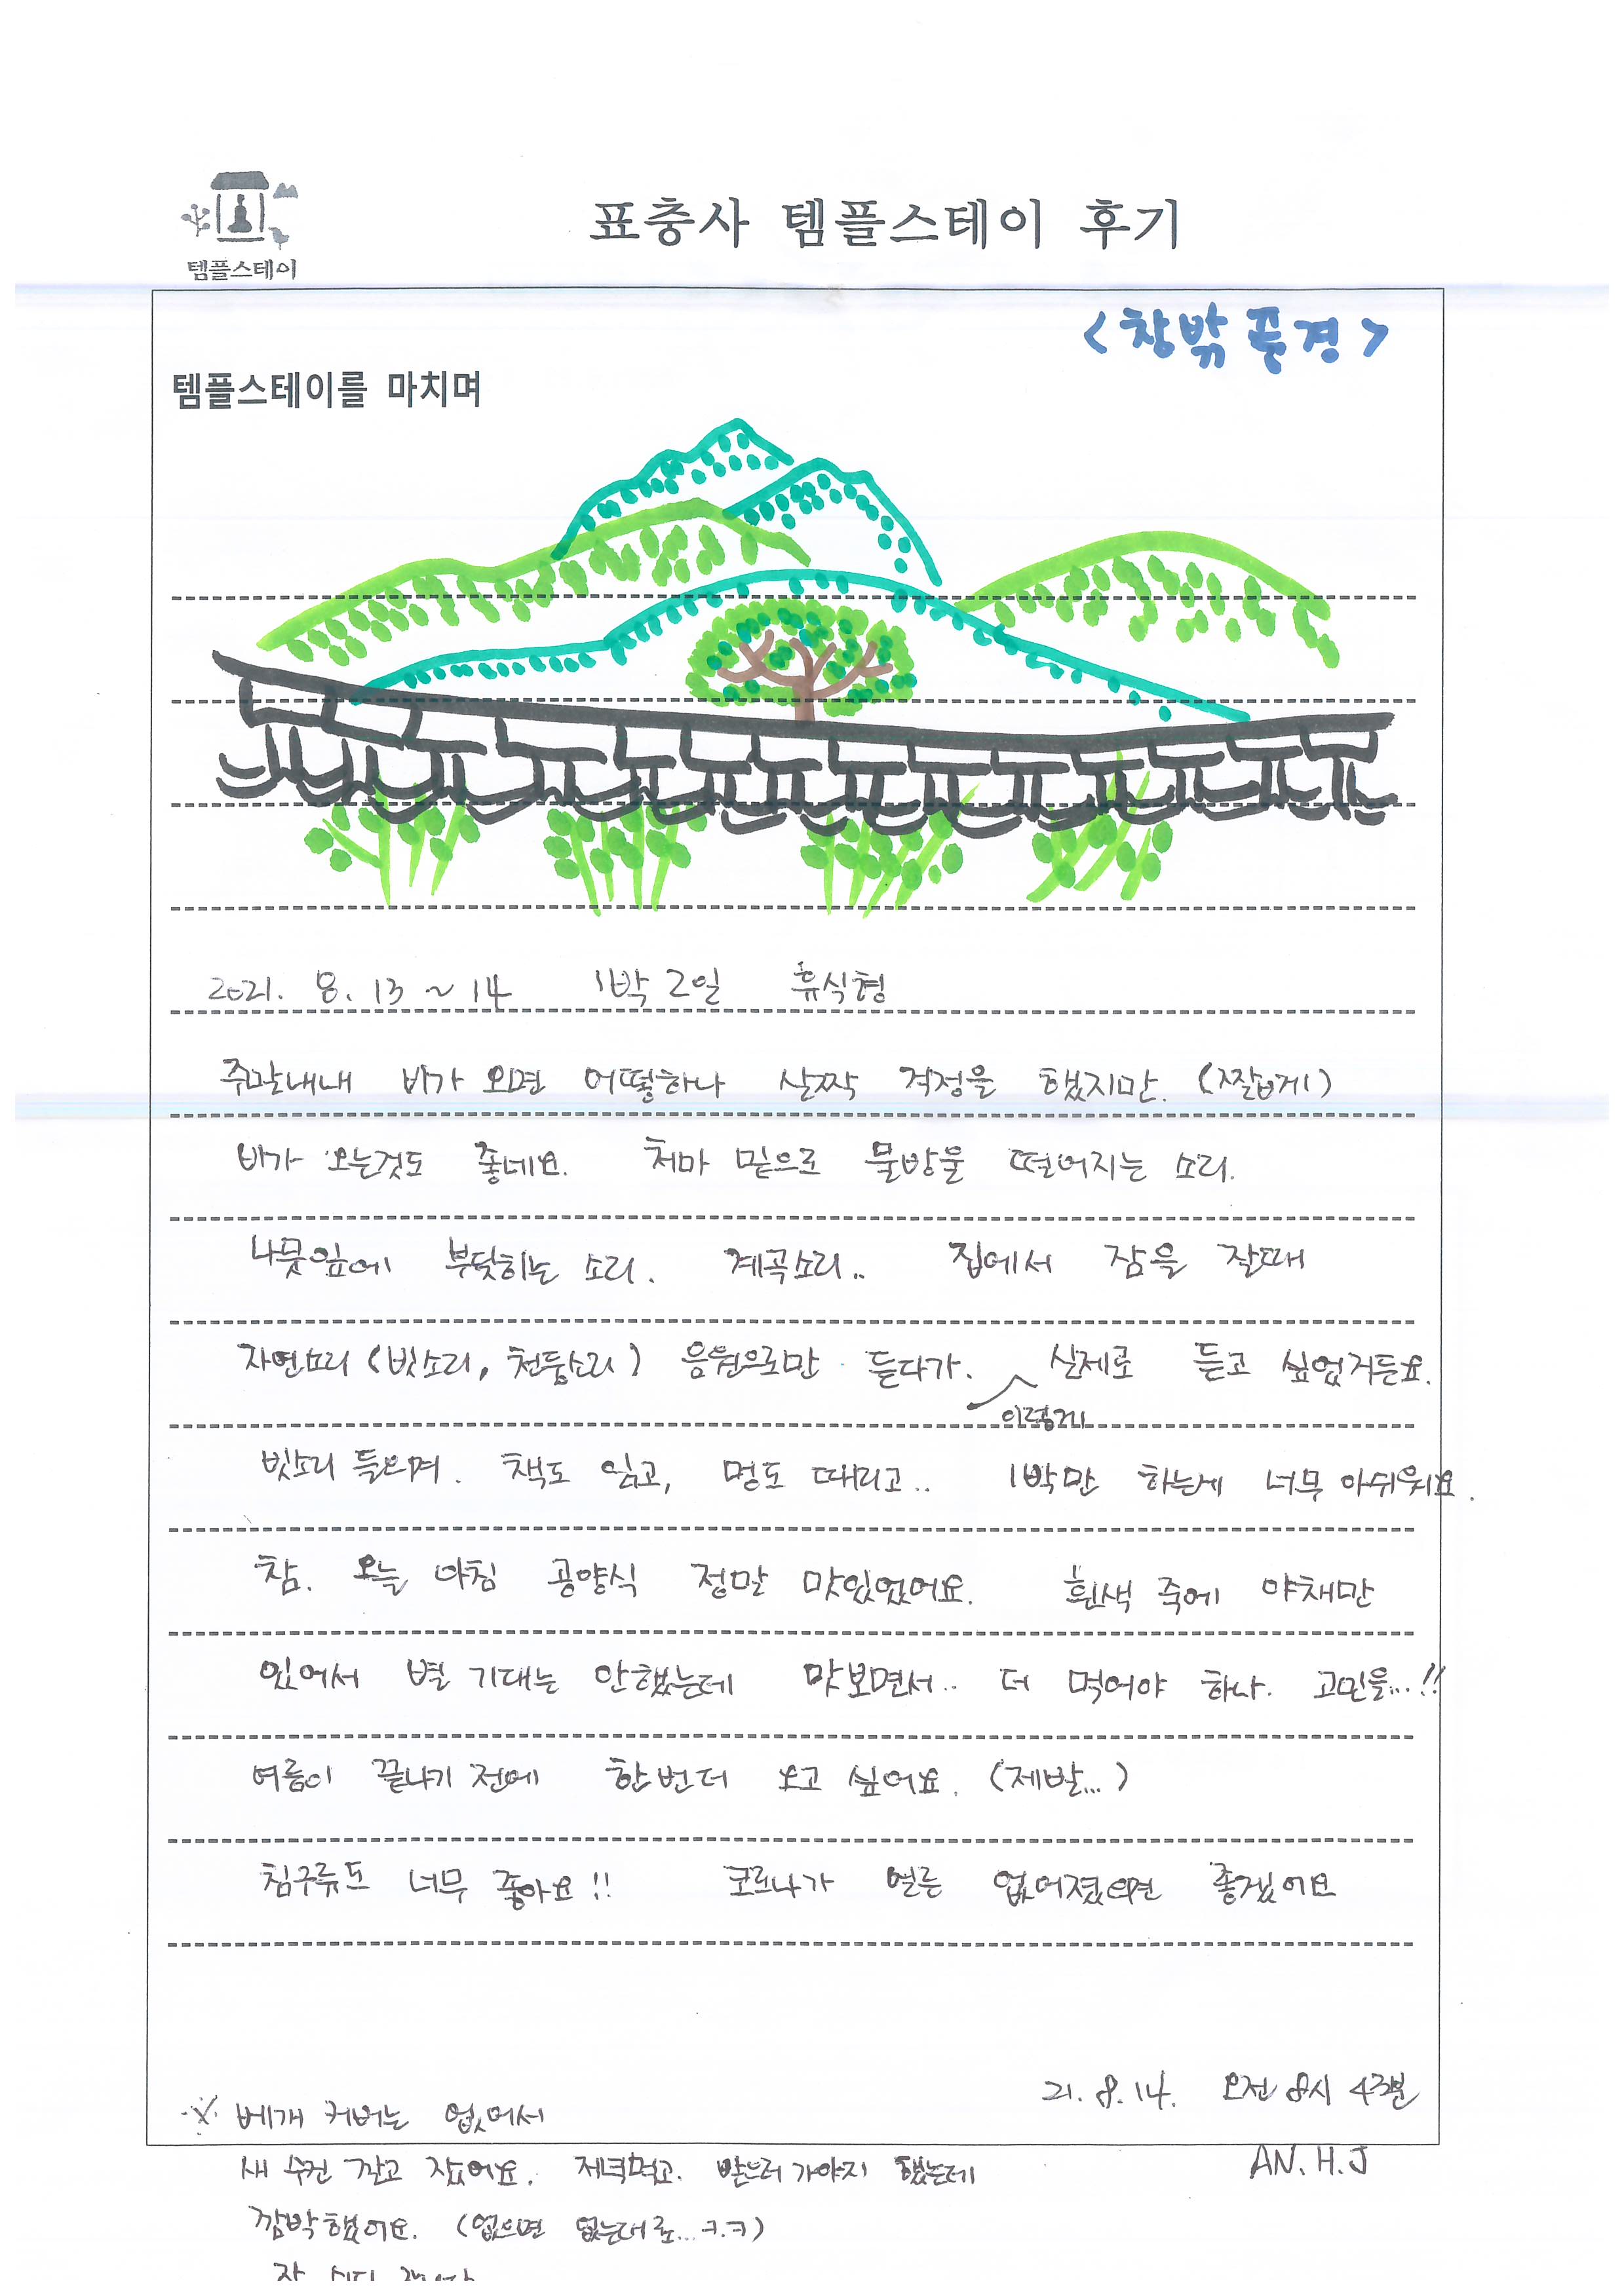 템플스테이
표충사 템플스테이 후기
<창밖 풍경>
템플스테이를 마치며
2021. 8. 13 ~ 14 1박 2일 휴식형
주말내내 비가 오면 어떻하나 살짝 걱정을 했지만. (짧게)
비가 오는것도 좋네요. 처마 밑으로 물방울 떨어지는 소리.
나뭇잎에 부딪히는 소리. 계곡소리.. 집에서 잠을 잘때
자연소리 (빗소리, 천둥소리) 음원으로만 듣다가. 실제로 듣고 싶었거든요.
이렇게
빗소리 들으며. 책도 읽고, 멍도 때리고.. 1박만 하는게 너무 아쉬워요.
참. 오늘 아침 공양식 정말 맛있었어요. 흰색 죽에 야채만
있어서 별 기대는 안했는데 맛보면서.. 더 먹어야 하나. 고민을...!!
여름이 끝나기 전에 한번더 오고 싶어요. (제발...)
침구류도 너무 좋아요!! 코로나가 얼른 없어졌으면 좋겠어요
21. 8. 14. 오전 8시 43분
※ 베개 커버는 없어서
새 수건 깔고 잤어요. 저녁먹고. 받으러 가야지 했는데
AN. H. J
깜박했어요. (없으면 없는대로...ㅋ.ㅋ)
잘